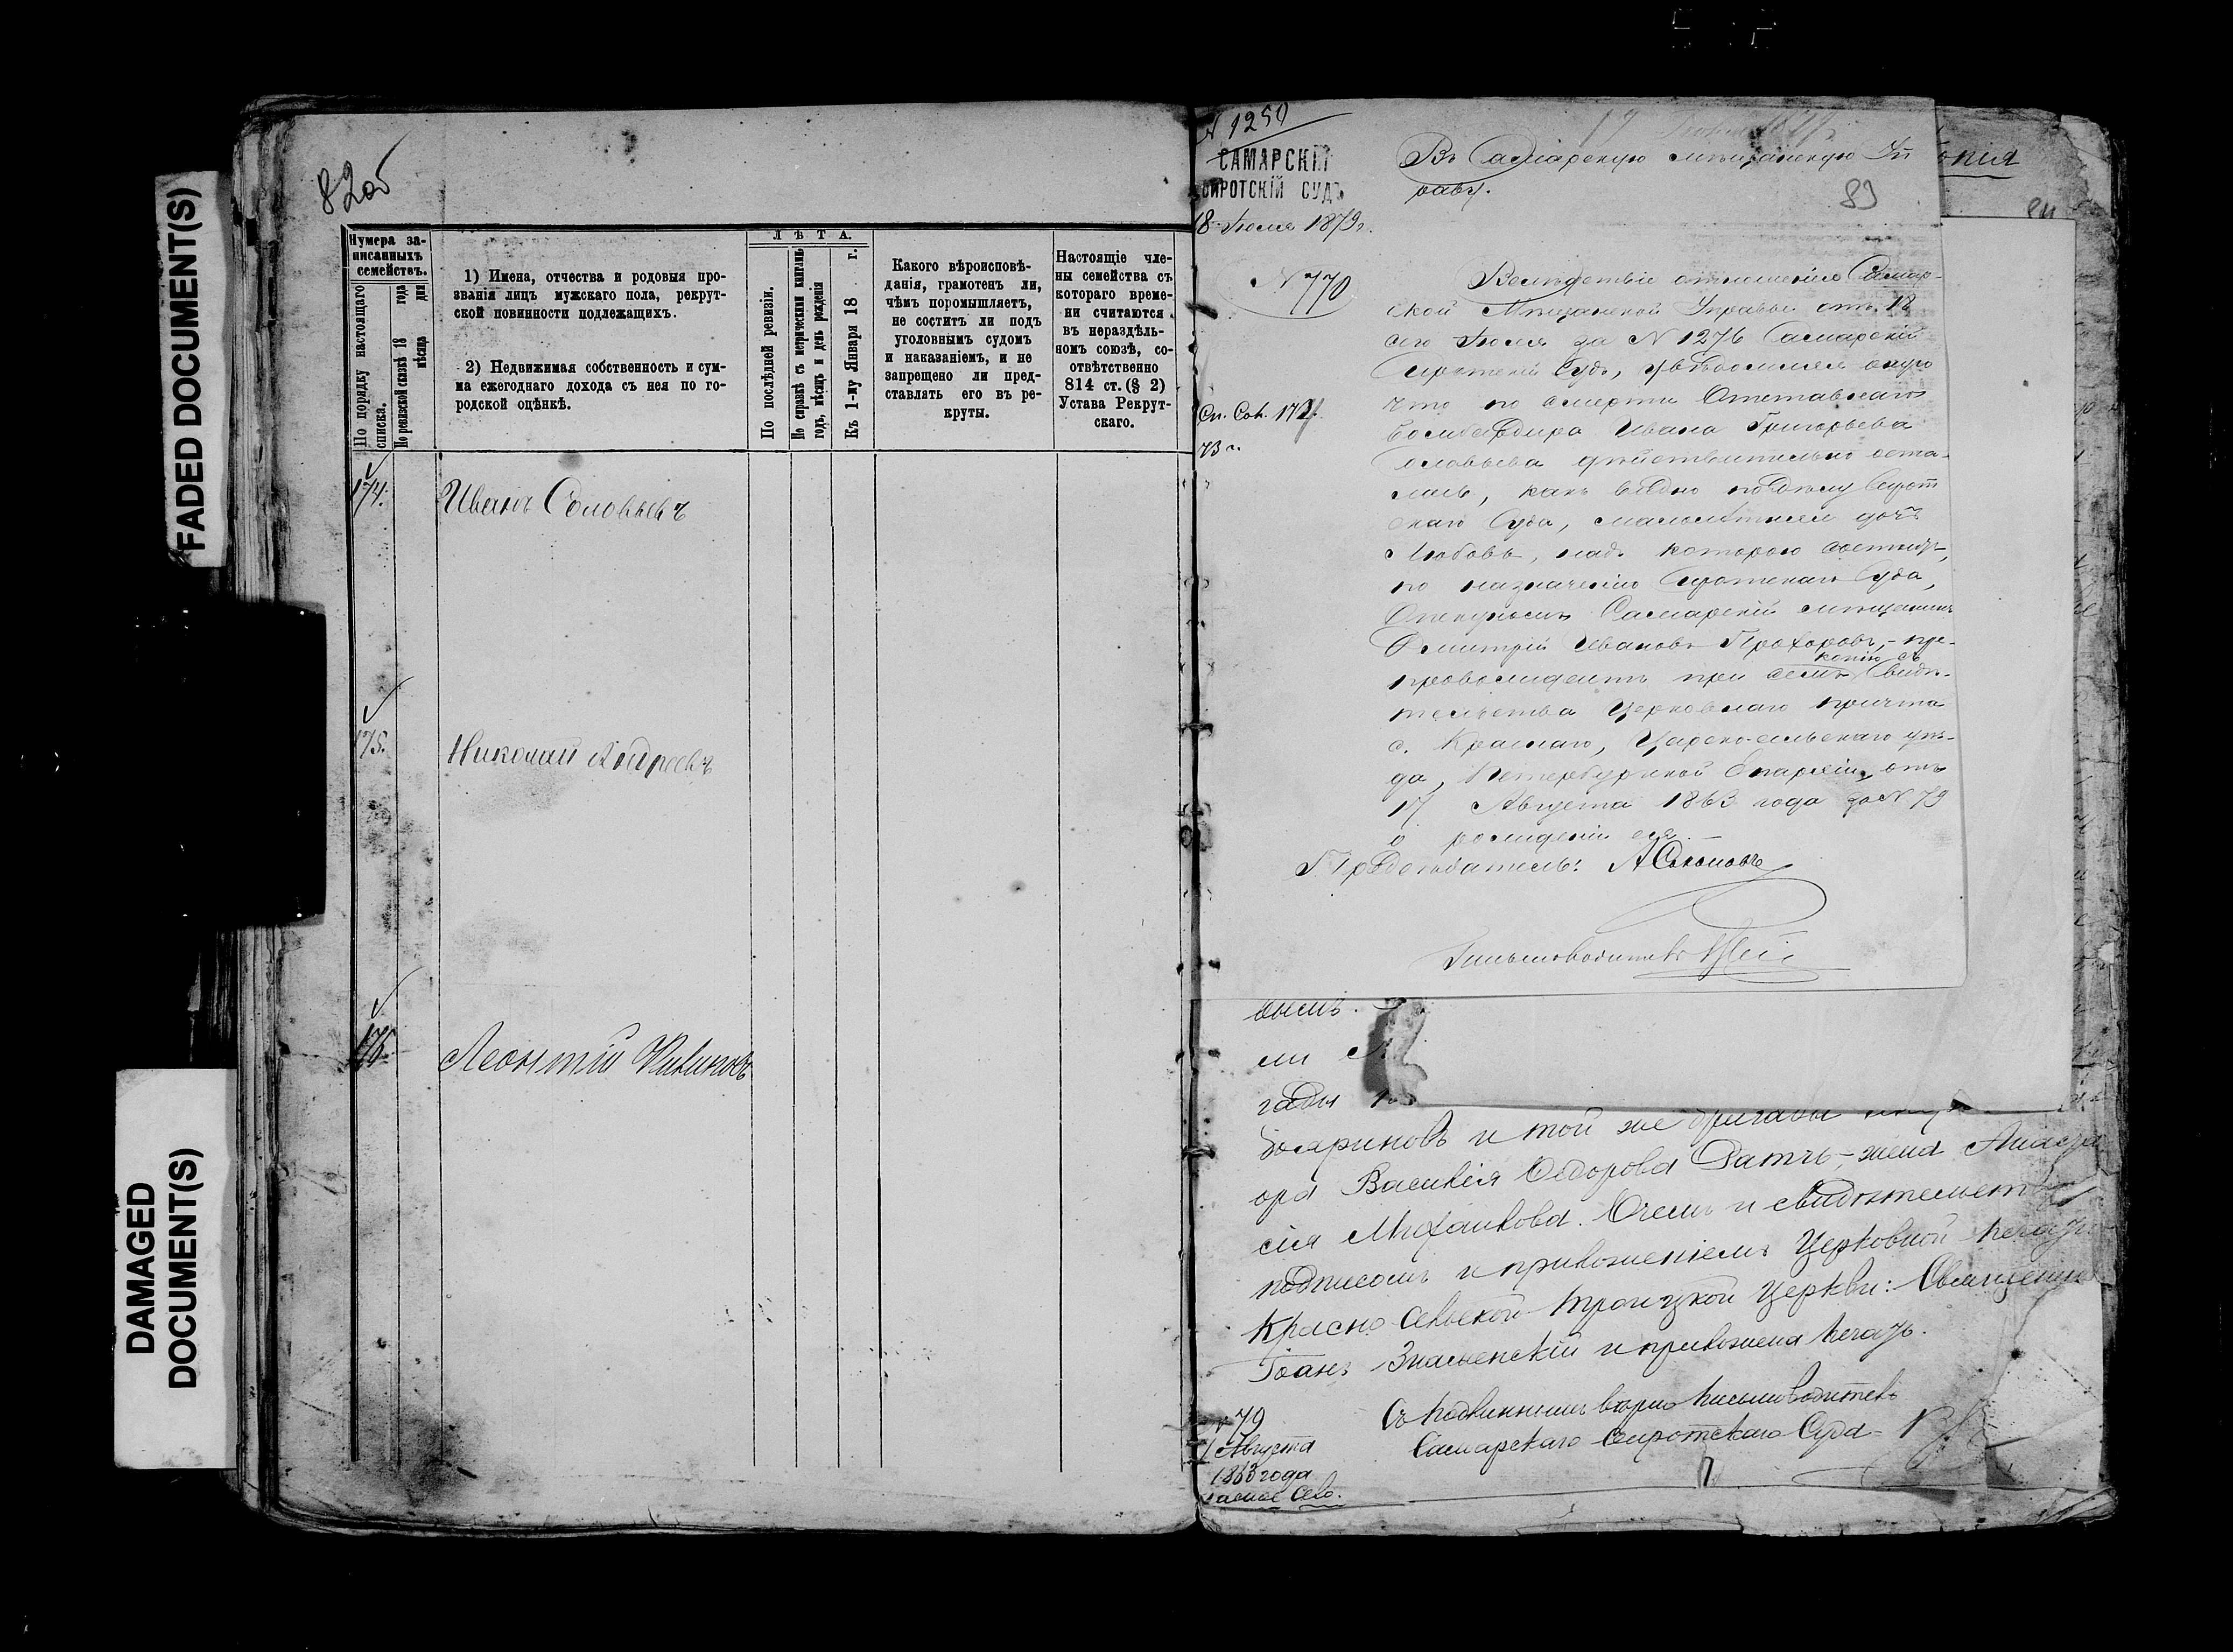 FADED DOCUMENT(S)
DAMAGED
DOCUMENT(S)
82об
Нумера за-
писанныхъ
семействъ.
По порядку настоящаго
списка.
По ревизской сказкѣ 18 года
мѣсяца дня
1) Имена, отчества и родовыя про-
званія лицъ мужскаго пола, рекрут-
ской повинности подлежащихъ.
2) Недвижимая собственность и сум-
ма ежегоднаго дохода съ нея по го-
родской оцѣнкѣ.
ЛѢТА.
По послѣдней ревизіи.
По справкѣ съ метрическими книгами
годъ, мѣсяцъ и день рожденія
Къ 1-му Января 18 г.
Какого вѣроисповѣ-
данія, грамотенъ ли,
чѣмъ поромышляетъ,
не соститъ ли подъ
уголовнымъ судомъ
и наказаніемъ, и не
запрещено ли пред-
ставлять его въ ре-
круты.
Настоящіе чле-
ны семейства съ
котораго време-
ни считаются
въ нераздѣль-
номъ союзѣ, со-
отвѣтственно
814 ст. (§ 2)
Устава Рекрут-
скаго.
174. Иванъ Соловьевъ
175. Николай Андреевъ
176. Леонтій
№ 1250
САМАРСКІЙ
СИРОТСКІЙ СУДЪ
18 Іюля 1879г.
№ 770
73 г.
Въ Самарскую мѣщанскую Уп
раву.
83
84
копія
Вслѣдствіе отношенія Самар-
ской Мѣщанской Управы отъ 18
сего Іюля за № 1276 Самарскій
Сиротскій Судъ, увѣдомляя оную
что по смерти Отставнаго
бомбардира Ивана Григорьева
Соловьева дѣйствительно оста-
лась, какъ видно по дѣлу Сирот
скаго Суда, малолѣтняя дочь
Любовь, надъ которою состоитъ,
по назначенію Сиротскаго Суда,
Опекуномъ Самарскій мѣщанинъ
Дмитрій Ивановъ Прохоровъ, - пре-
копію съ
провождаетъ при семъ свидѣ-
тельства Церковнаго причта
с. Краснаго, Царскосельскаго уѣз-
да, Петербургской Епархіи, отъ
17 Августа 1863 года за № 79
о рожденіи ея. -
Предсѣдатель: А Соколовъ
Письмоводитель
вымъ.
ли
гады
Бояриновъ и той же бригады
ора Василія Ѳедорова жена Анаста
сія Михайлова. Въ чемъ и свидѣтельств
подписомъ и приложеніемъ Церковной печати
Красно-сельской Троицкой Церкви: Священникъ
Іоаннъ Знаменскій и приложена печать.
№ 79
Августа
1863 года
Красное Село.
Съ подлиннымъ вѣрно Письмоводитель
Самарскаго Сиротскаго Суда